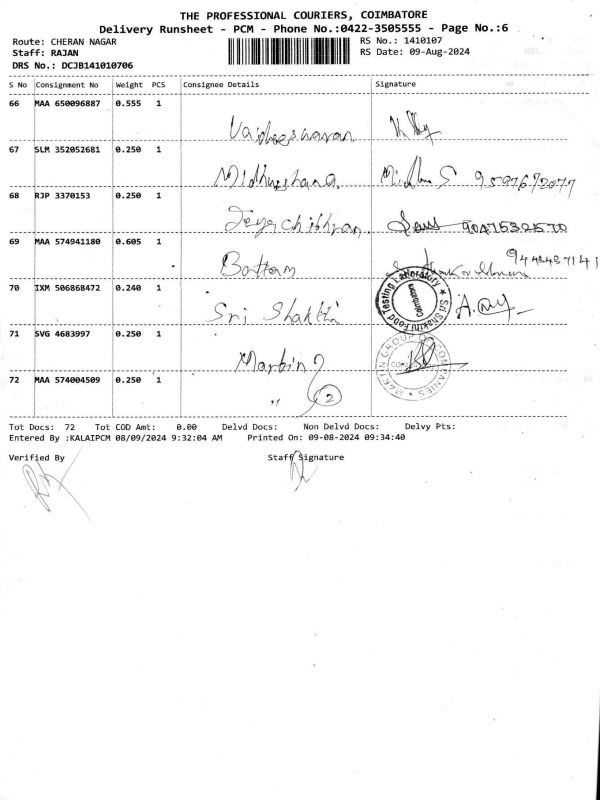 THE PROFESSIONAL COURIERS, COIMBATORE
Delivery Runsheet - PCM - Phone No.:0422-3505555 - Page No.:6
Route: CHERAN NAGAR RS No.: 1410107
Staff: RAJAN RS Date: 09-Aug-2024
DRS No.: DCJB141010706
S No Consignment No Weight PCS Consignee Details Signature
66 MAA 650096887 0.555 1
Vaidheeswaran
67 SLM 352052681 0.250 1
Midhurshana 9597672077
68 RJP 3370153 0.250 1
Jeyachithran 9047532570
69 MAA 574941180 0.605 1
Bottom
70 IXM 506868472 0.240 1
Sri Shakthi
Sri Shakthi Food Testing Laboratory
Coimbatore
71 SVG 4683997 0.250 1
Martin
MARTIN GROUP OF COMPANIES
72 MAA 574004509 0.250 1
" 2
Tot Docs: 72 Tot COD Amt: 0.00 Delvd Docs: Non Delvd Docs: Delvy Pts:
Entered By :KALAIPCM 08/09/2024 9:32:04 AM Printed On: 09-08-2024 09:34:40
Verified By Staff Signature